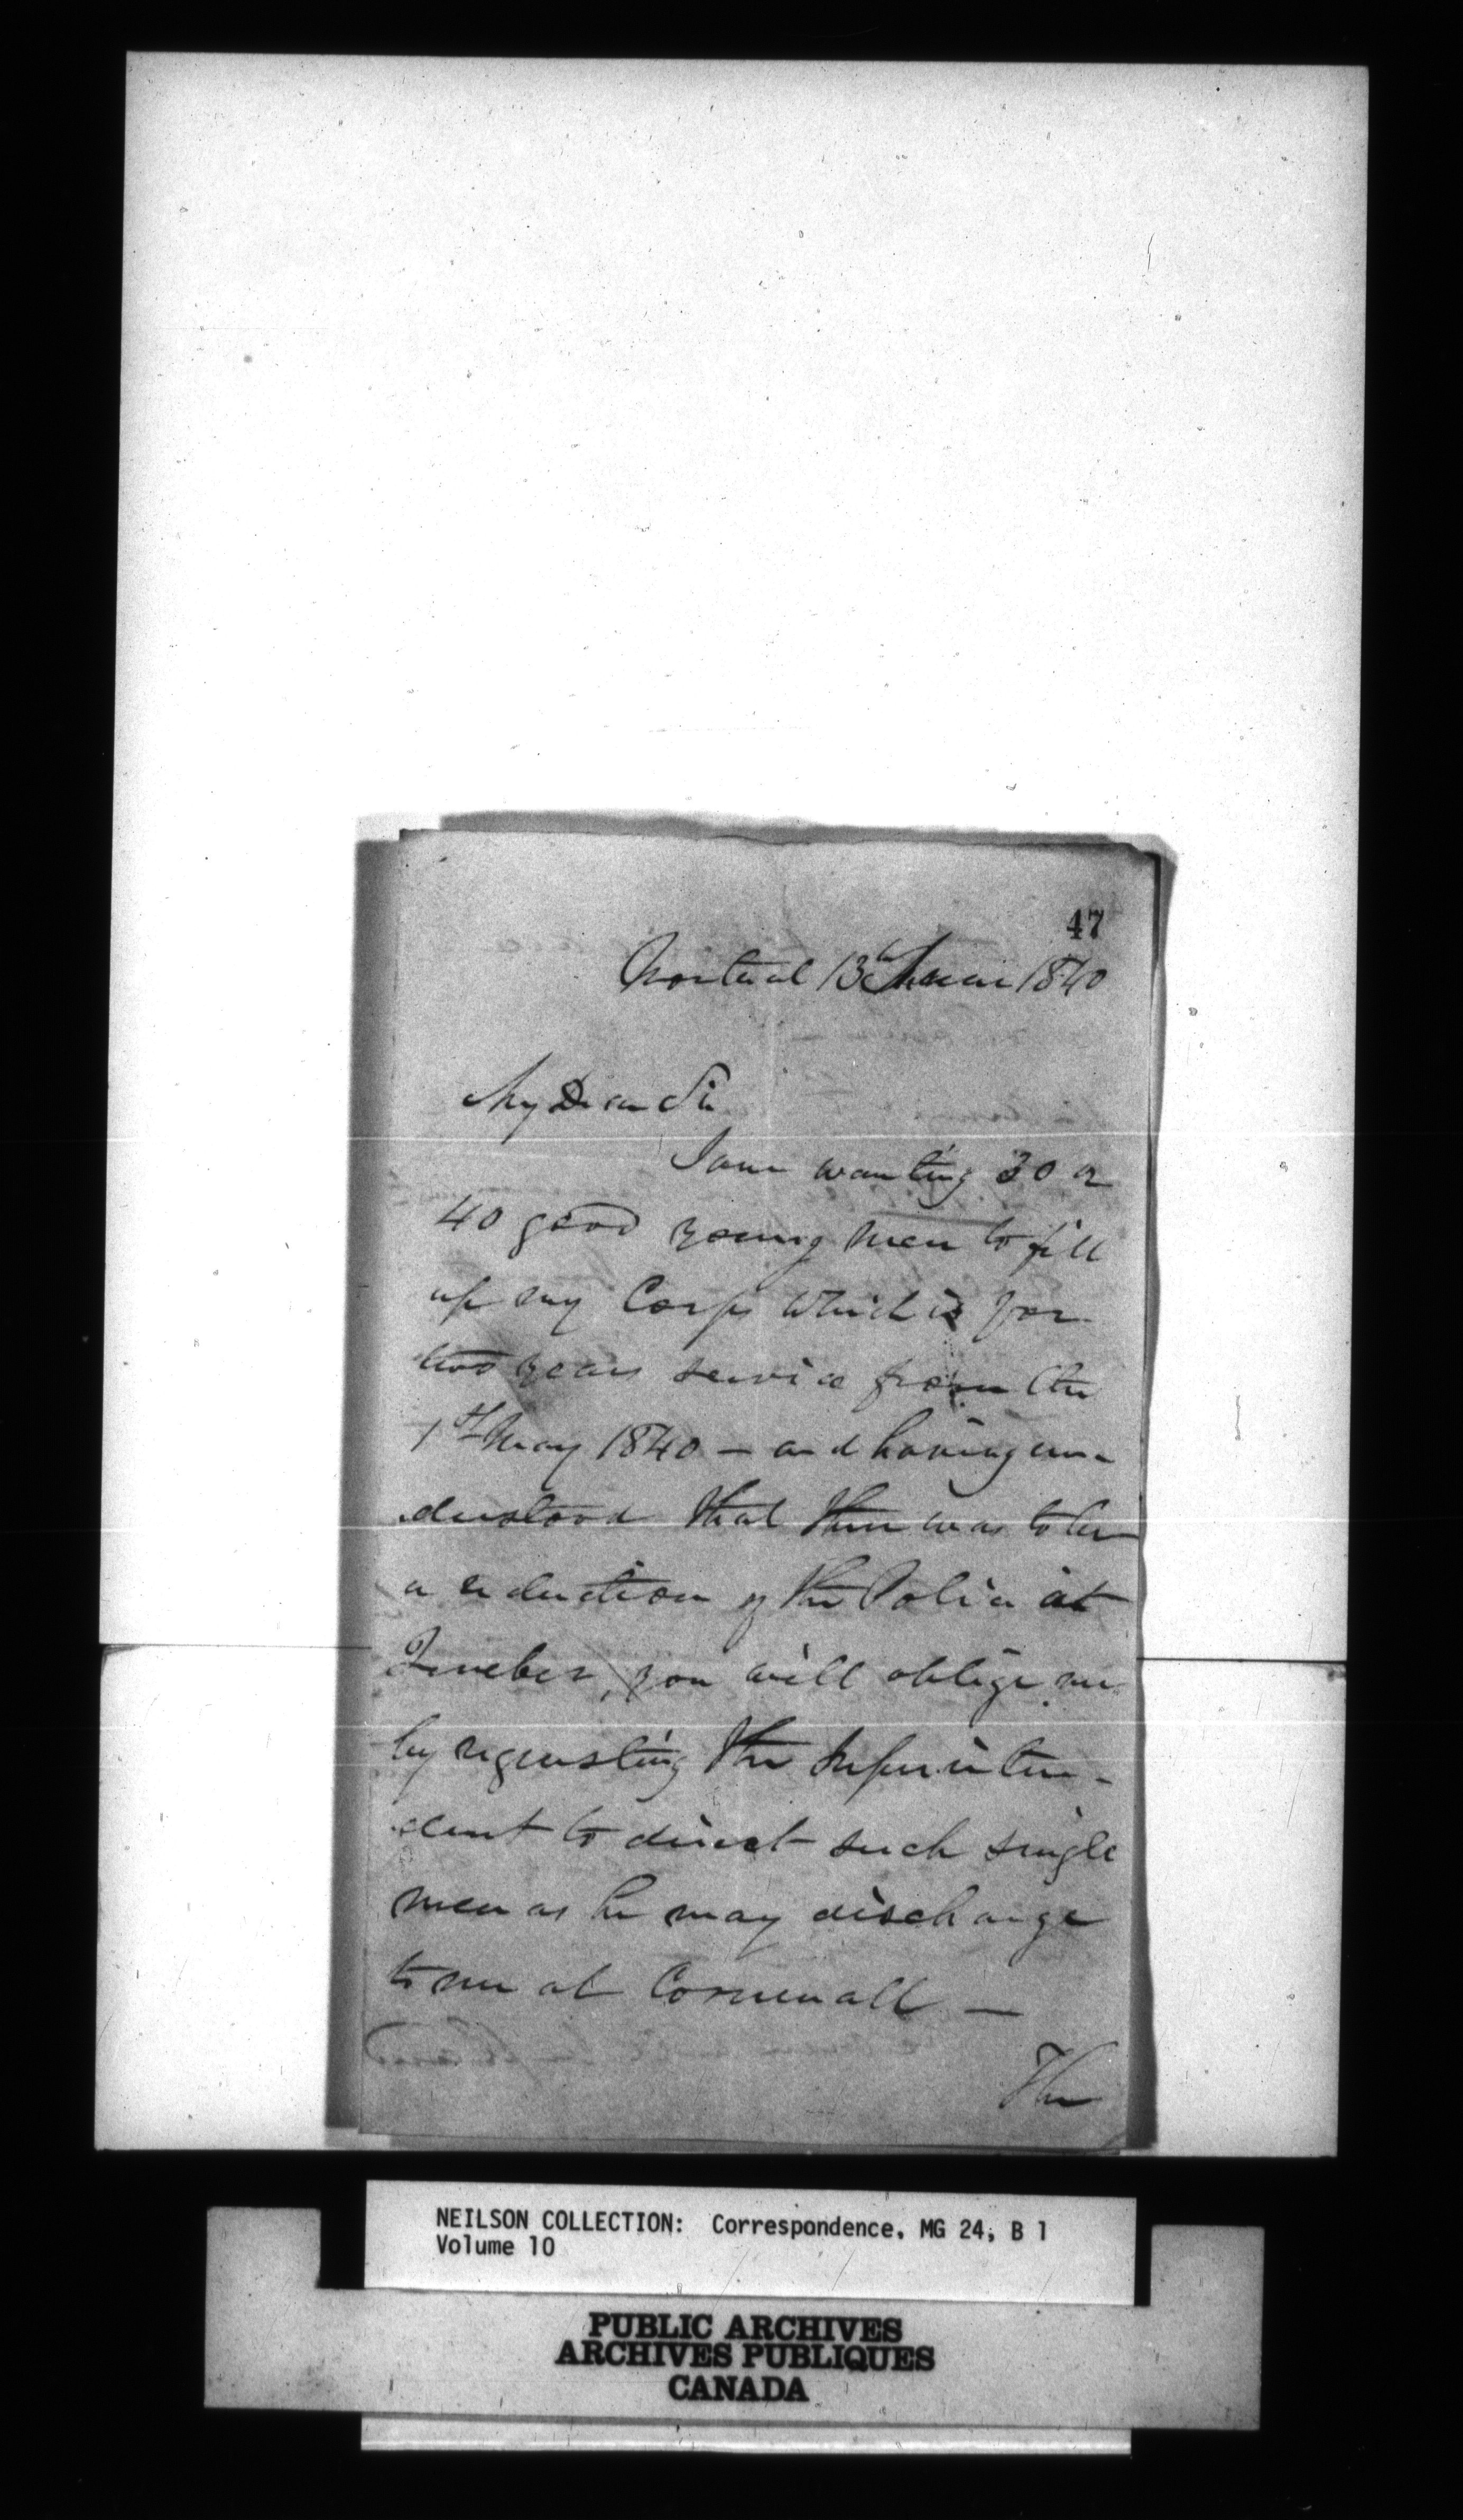 47
Montreal 13th June 1840
My Dear Sir
I am wanting 30 or
40 good young men to fill
up my Corps which is for
two years service from the
1st May 1840 — and having un-
derstood that there was to be
a reduction of the Police at
Quebec, you will oblige me
by requesting the Superinten-
dent to direct such single
men as he may discharge
to me at Cornwall —
The
NEILSON COLLECTION: Correspondence, MG 24, B 1
Volume 10
PUBLIC ARCHIVES
ARCHIVES PUBLIQUES
CANADA